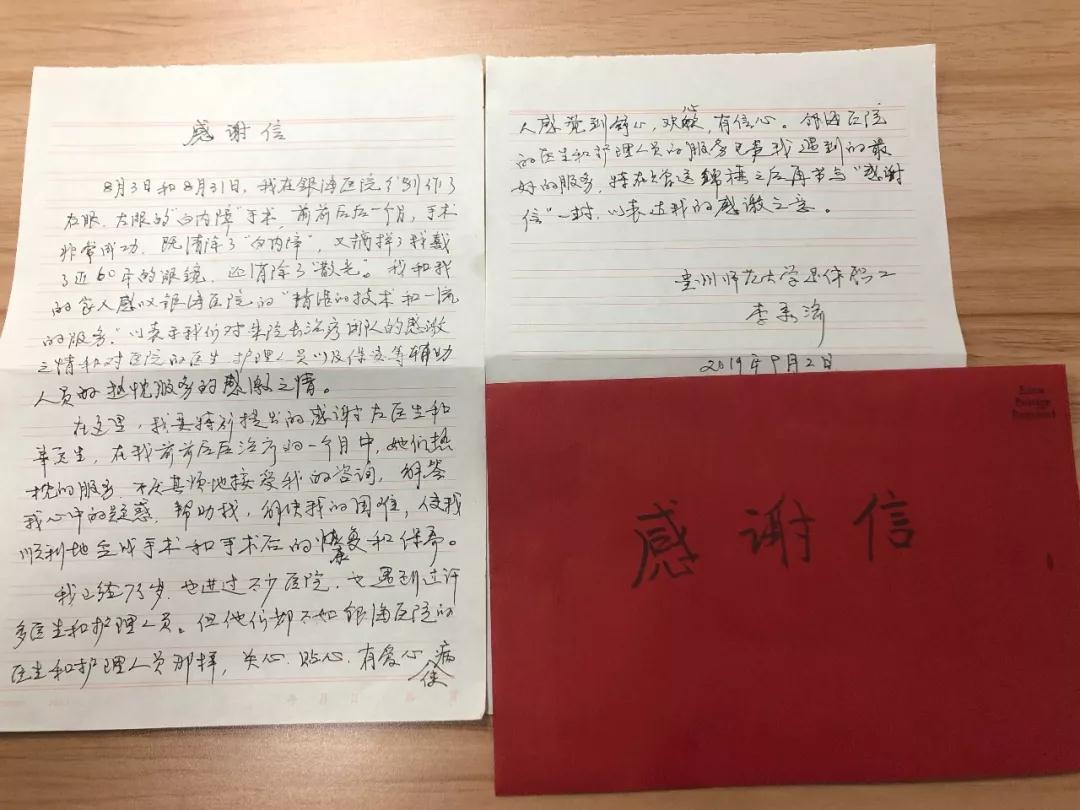 感谢信
8月3日和8月31日，我在銀海医院分别作了
右眼、左眼的"白内障"手术，前前后后一个月，手术
非常成功，既清除了"白内障"，又摘掉了我戴
了近60年的眼镜，还消除了"散光"。我和我
的家人感叹銀海医院的"精准的技术和一流
的服务"以表示我们对集院长治疗团队的感激
之情和对医院的医生护理人员以及保安等辅助
人员的热忱服务的感激之情。
在这里，我要特别提出的感谢左医生和
辜医生，在我前前后后治疗的一个月中，她们热
忱的服务，不厌其烦地接受我的咨询，解答
我心中的疑惑，帮助我，解决我的困难，使我
顺利地完成手术和手术后的恢复和保养。
我已经73岁，也进过不少医院，也遇到过许
多医生和护理人员。但他们都不如銀海医院的
医生和护理人员那样，关心、贴心、有爱心，使病
人感觉到舒心，欢心，有信心。銀海医院
的医生和护理人员的服务已是我遇到的最
好的服务，特在大客送錦旗之后再书写"感谢
信"一封，以表达我的感激之意。
贵州师范大学退休职工
李
2019年9月2日
感谢信